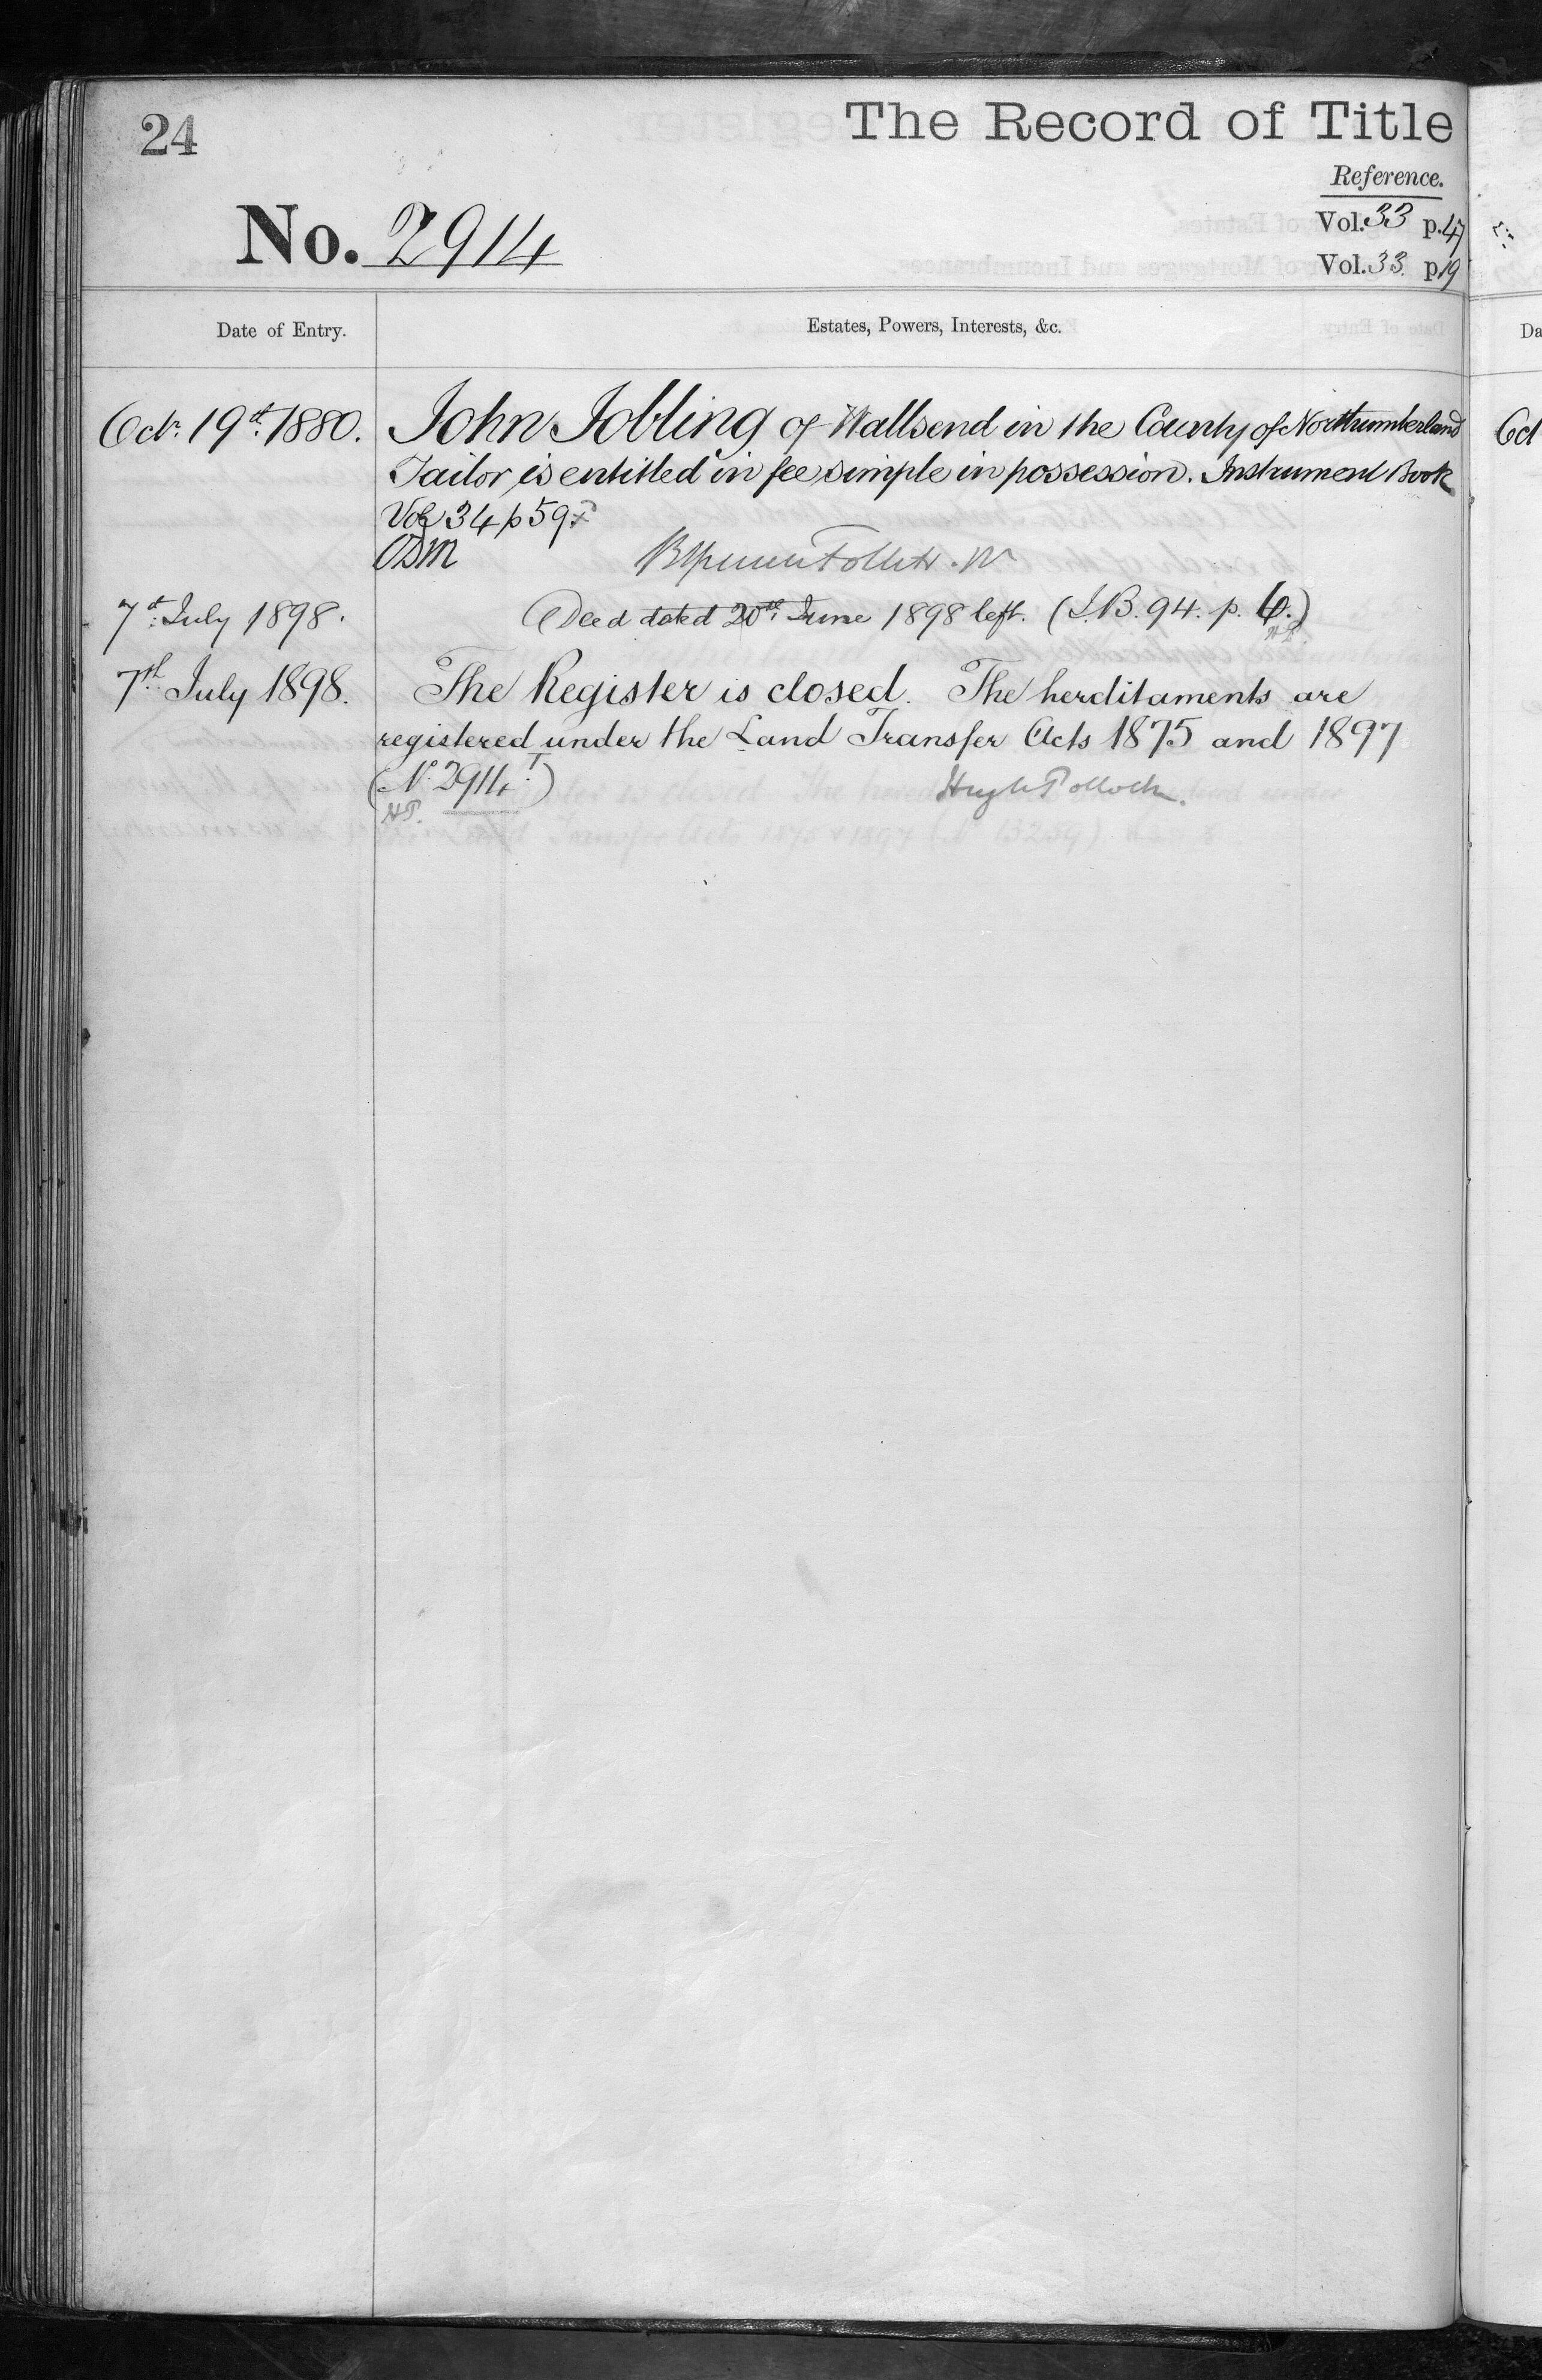 24
The Record of Title
Reference.
No. 2914
Vol. 33 p. 47
Vol. 33. p 19
Date of Entry.
Estates, Powers, Interests, &c.
Octr. 19th. 1880. John Jobling of Wallsend in the County of Northumberland
Tailor is entitled in fee simple in possession. Instrument Book
Vol 34 p 59.
7th. July 1898. Deed dated 20th. June 1898 left. (I.B. 94. p. 6.)
7th. July 1898. The Register is closed. The herditaments are
registered under the Land Transfer Acts 1875 and 1897
(No. 2914 T.) Hugh Pollock.
H.P.